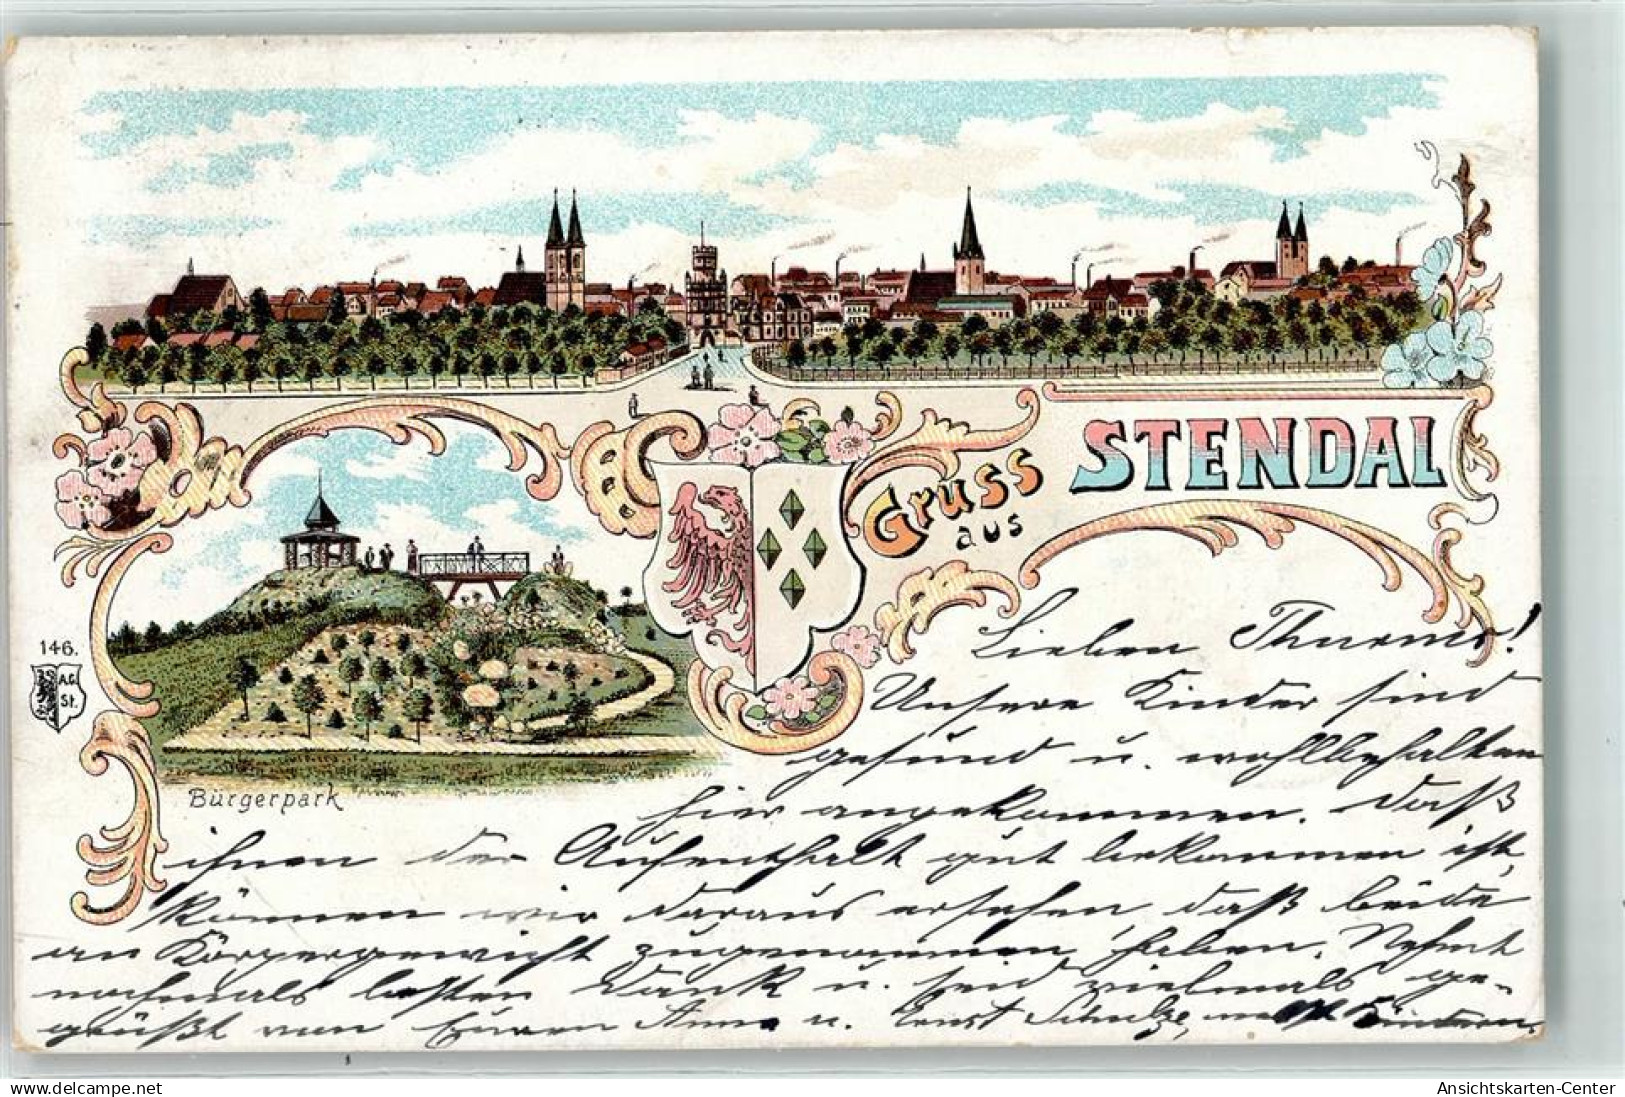 Gruss
aus
STENDAL
146.
A.G.
St.
Bürgerpark
Lieben Thurms!
Unsere Kinder sind
gesund u. wohlbehalten
hier angekommen. Daß
ihnen der Aufenthalt gut bekommen ist,
können wir daraus ersehen daß beide
an Körpergewicht zugenommen haben. Nehmt
nochmals besten Dank u. seid vielmals ge-
grüßt von Euren Anna u. Ernst Schulze, Kindern.
Ansichtskarten-Center
www.delcampe.net